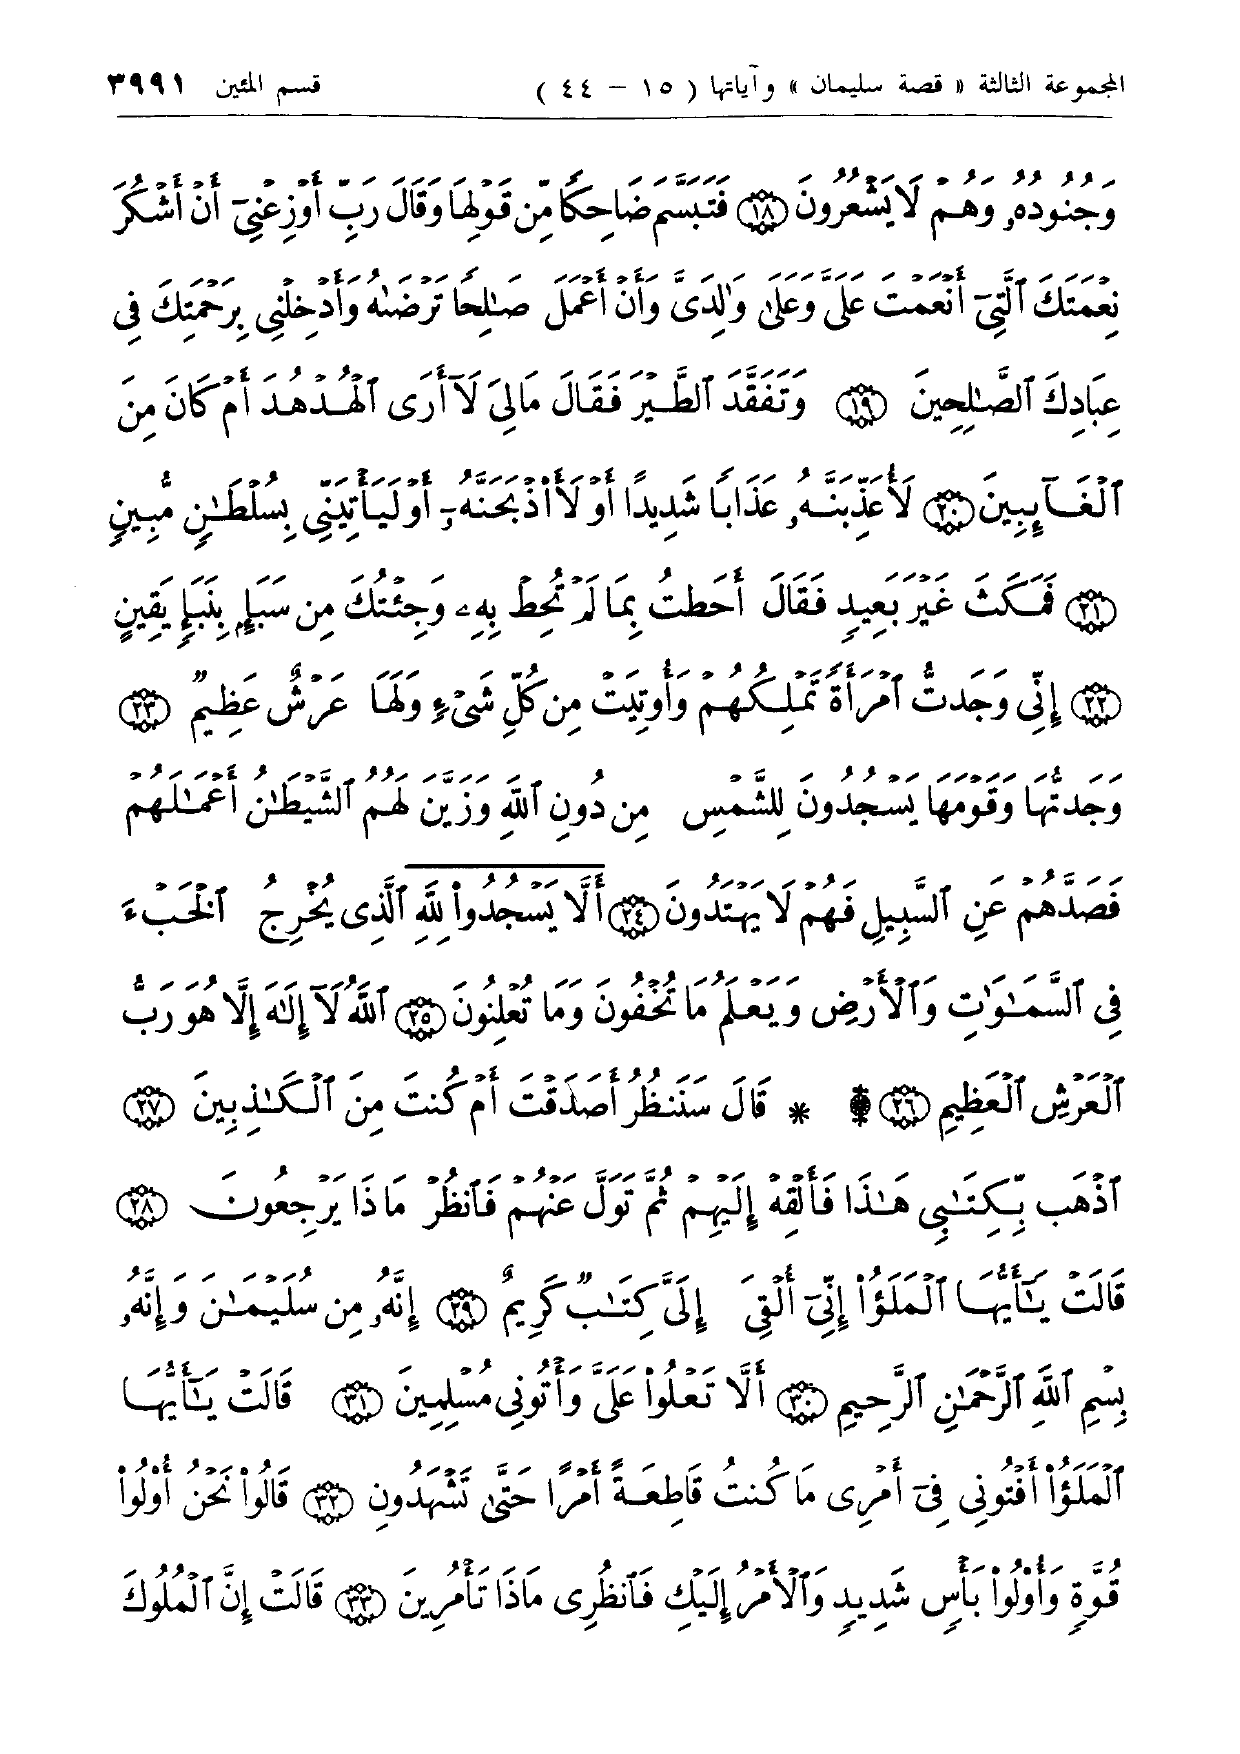 المجموعة الثالثة « قصة سليمان » وآياتها ( ١٥ – ٤٤ ) قسم المئين ٣٩٩١
وَجُنُودُهُۥ وَهُمْ لَا يَشْعُرُونَ ﴿١٨﴾ فَتَبَسَّمَ ضَاحِكًا مِّن قَوْلِهَا وَقَالَ رَبِّ أَوْزِعْنِىٓ أَنْ أَشْكُرَ
نِعْمَتَكَ ٱلَّتِىٓ أَنْعَمْتَ عَلَىَّ وَعَلَىٰ وَٰلِدَىَّ وَأَنْ أَعْمَلَ صَٰلِحًا تَرْضَىٰهُ وَأَدْخِلْنِى بِرَحْمَتِكَ فِى
عِبَادِكَ ٱلصَّٰلِحِينَ ﴿١٩﴾ وَتَفَقَّدَ ٱلطَّيْرَ فَقَالَ مَالِىَ لَآ أَرَى ٱلْهُدْهُدَ أَمْ كَانَ مِنَ
ٱلْغَآئِبِينَ ﴿٢٠﴾ لَأُعَذِّبَنَّهُۥ عَذَابًا شَدِيدًا أَوْ لَأَا۟ذْبَحَنَّهُۥٓ أَوْ لَيَأْتِيَنِّى بِسُلْطَٰنٍ مُّبِينٍ
﴿٢١﴾ فَمَكَثَ غَيْرَ بَعِيدٍ فَقَالَ أَحَطتُ بِمَا لَمْ تُحِطْ بِهِۦ وَجِئْتُكَ مِن سَبَإٍۭ بِنَبَإٍ يَقِينٍ
﴿٢٢﴾ إِنِّى وَجَدتُّ ٱمْرَأَةً تَمْلِكُهُمْ وَأُوتِيَتْ مِن كُلِّ شَىْءٍ وَلَهَا عَرْشٌ عَظِيمٌ ﴿٢٣﴾
وَجَدتُّهَا وَقَوْمَهَا يَسْجُدُونَ لِلشَّمْسِ مِن دُونِ ٱللَّهِ وَزَيَّنَ لَهُمُ ٱلشَّيْطَٰنُ أَعْمَٰلَهُمْ
فَصَدَّهُمْ عَنِ ٱلسَّبِيلِ فَهُمْ لَا يَهْتَدُونَ ﴿٢٤﴾ أَلَّا يَسْجُدُوا۟ لِلَّهِ ٱلَّذِى يُخْرِجُ ٱلْخَبْءَ
فِى ٱلسَّمَٰوَٰتِ وَٱلْأَرْضِ وَيَعْلَمُ مَا تُخْفُونَ وَمَا تُعْلِنُونَ ﴿٢٥﴾ ٱللَّهُ لَآ إِلَٰهَ إِلَّا هُوَ رَبُّ
ٱلْعَرْشِ ٱلْعَظِيمِ ﴿٢٦﴾ ۞ * قَالَ سَنَنظُرُ أَصَدَقْتَ أَمْ كُنتَ مِنَ ٱلْكَٰذِبِينَ ﴿٢٧﴾
ٱذْهَب بِّكِتَٰبِى هَٰذَا فَأَلْقِهْ إِلَيْهِمْ ثُمَّ تَوَلَّ عَنْهُمْ فَٱنظُرْ مَاذَا يَرْجِعُونَ ﴿٢٨﴾
قَالَتْ يَٰٓأَيُّهَا ٱلْمَلَؤُا۟ إِنِّىٓ أُلْقِىَ إِلَىَّ كِتَٰبٌ كَرِيمٌ ﴿٢٩﴾ إِنَّهُۥ مِن سُلَيْمَٰنَ وَإِنَّهُۥ
بِسْمِ ٱللَّهِ ٱلرَّحْمَٰنِ ٱلرَّحِيمِ ﴿٣٠﴾ أَلَّا تَعْلُوا۟ عَلَىَّ وَأْتُونِى مُسْلِمِينَ ﴿٣١﴾ قَالَتْ يَٰٓأَيُّهَا
ٱلْمَلَؤُا۟ أَفْتُونِى فِىٓ أَمْرِى مَا كُنتُ قَاطِعَةً أَمْرًا حَتَّىٰ تَشْهَدُونِ ﴿٣٢﴾ قَالُوا۟ نَحْنُ أُو۟لُوا۟
قُوَّةٍ وَأُو۟لُوا۟ بَأْسٍ شَدِيدٍ وَٱلْأَمْرُ إِلَيْكِ فَٱنظُرِى مَاذَا تَأْمُرِينَ ﴿٣٣﴾ قَالَتْ إِنَّ ٱلْمُلُوكَ